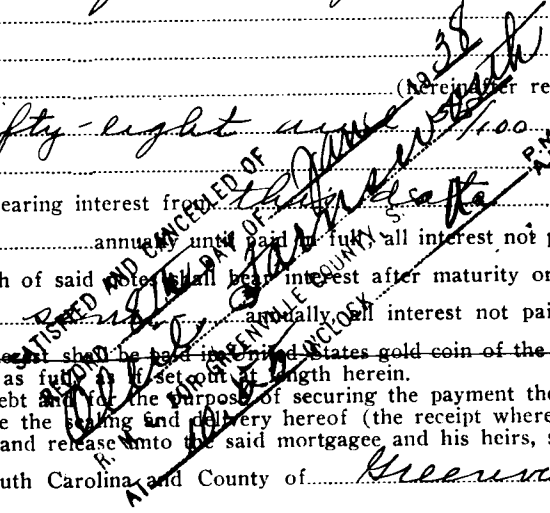 (hereinafter re
fty-eight and 58/100
earing interest from this date
annually until paid in full, all interest not p
h of said notes shall bear interest after maturity or
annually, all interest not pai
erest shall be paid in United States gold coin of the
as fully as if set out at length herein.
ebt and for the purpose of securing the payment the
e the sealing and delivery hereof (the receipt where
and release unto the said mortgagee and his heirs, s
outh Carolina and County of Greenv
SATISFIED AND CANCELLED OF
RECORD 8th DAY OF June 1938
Farnsworth
R. M. C. FOR GREENVILLE COUNTY, S. C.
AT O'CLOCK P.M.